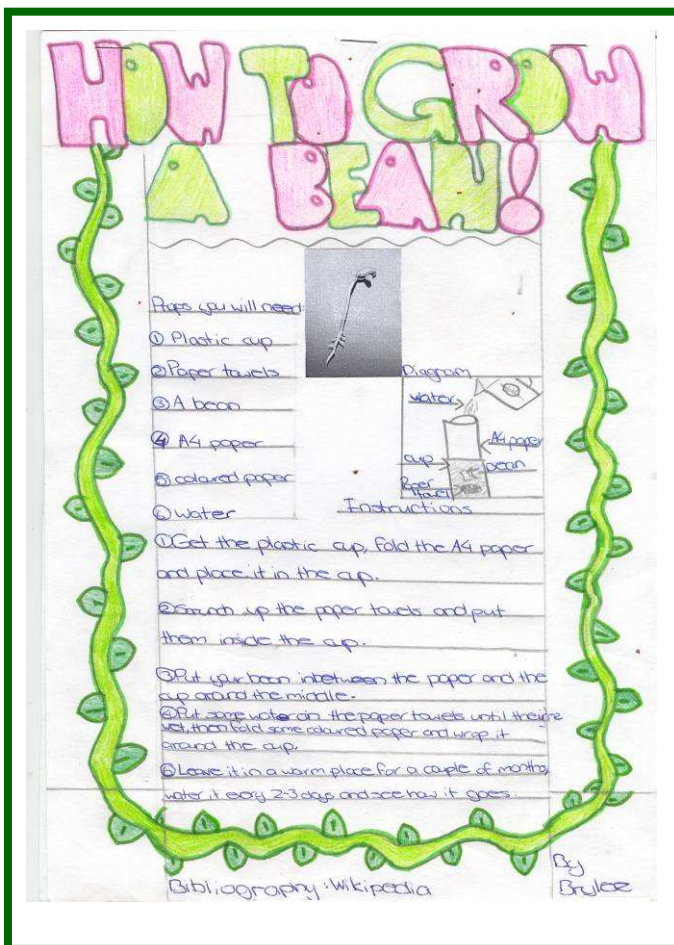 HOW TO GROW
A BEAN!
Props you will need:
① Plastic cup
② Paper towels
③ A bean
④ A4 paper
⑤ coloured paper
⑥ water
Diagram
water
A4 paper
cup
bean
towel
Instructions
① Get the plastic cup, fold the A4 paper
and place it in the cup.
② Scrunch up the paper towels and put
them inside the cup.
③ Put your bean inbetween the paper and the
cup around the middle.
④ Put some water on the paper towels until they're
wet, then fold some coloured paper and wrap it
around the cup.
⑤ Leave it in a warm place for a couple of months,
water it every 2-3 days and see how it goes.
Bibliography: Wikipedia
By
Brylee